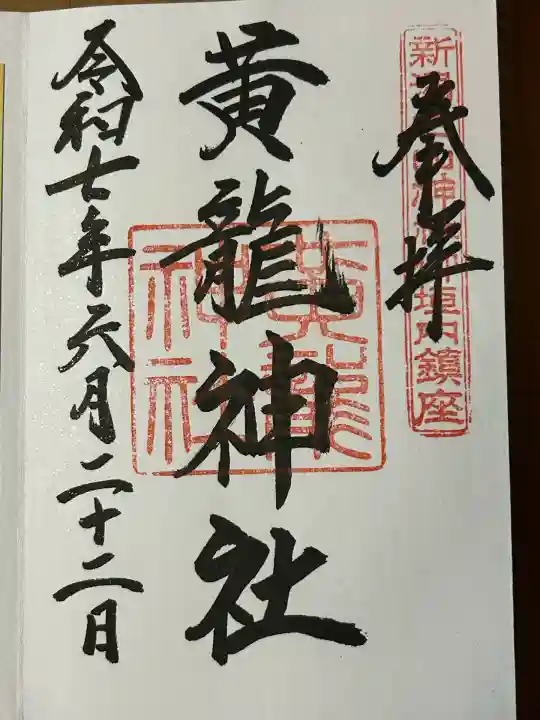 奉拝
新潟白山神社境内鎮座
黄龍神社
黄龍神社
令和七年六月二十二日